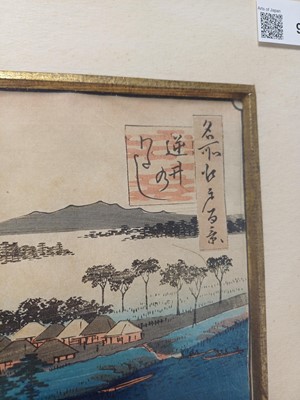 Arts of Japan
9
名所江戸百景
逆井の
わたし